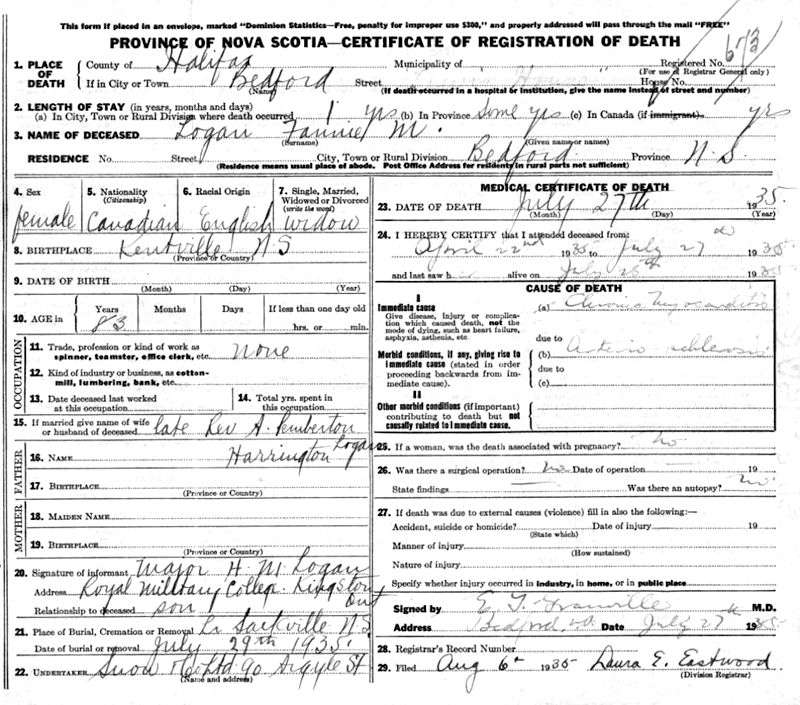 This form if placed in an envelope, marked "Dominion Statistics—Free, penalty for improper use $300," and properly addressed will pass through the mail "FREE"
PROVINCE OF NOVA SCOTIA—CERTIFICATE OF REGISTRATION OF DEATH
673
1. PLACE OF DEATH
County of Halifax Municipality of Registered No.
(For use of Registrar General only)
If in City or Town Bedford Street House No.
(Name) (If death occurred in a hospital or institution, give the name instead of street and number)
2. LENGTH OF STAY (in years, months and days)
(a) In City, Town or Rural Division where death occurred 1 yrs (b) In Province Some yrs (c) In Canada (if immigrant) yrs
3. NAME OF DECEASED Logan Fannie M.
(Surname) (Given name or names)
RESIDENCE No. Street City, Town or Rural Division Bedford Province N.S.
(Residence means usual place of abode. Post Office Address for residents in rural parts not sufficient)
4. Sex female
5. Nationality (Citizenship) Canadian
6. Racial Origin English
7. Single, Married, Widowed or Divorced (write the word) widow
8. BIRTHPLACE Kentville N S
(Province or Country)
9. DATE OF BIRTH
(Month) (Day) (Year)
10. AGE in Years 83 Months Days If less than one day old
hrs. or min.
OCCUPATION
11. Trade, profession or kind of work as spinner, teamster, office clerk, etc. none
12. Kind of industry or business, as cotton-mill, lumbering, bank, etc.
13. Date deceased last worked at this occupation
14. Total yrs. spent in this occupation
15. If married give name of wife or husband of deceased late Rev A. Pemberton Logan
FATHER
16. NAME Harrington
17. BIRTHPLACE
(Province or Country)
MOTHER
18. MAIDEN NAME
19. BIRTHPLACE
(Province or Country)
20. Signature of informant Major H. M. Logan
Address Royal Military College. Kingston Ont
Relationship to deceased son
21. Place of Burial, Cremation or Removal Lr Sackville N S
Date of burial or removal July 29th 1935
22. UNDERTAKER Snow & Co Ltd 90 Argyle St
(Name and address)
MEDICAL CERTIFICATE OF DEATH
23. DATE OF DEATH July 27th 1935
(Month) (Day) (Year)
24. I HEREBY CERTIFY that I attended deceased from:
April 22nd 1935 to July 27 1935
and last saw h alive on July 26th 1935
CAUSE OF DEATH
I
Immediate cause
Give disease, injury or complication which caused death, not the mode of dying, such as heart failure, asphyxia, asthenia, etc.
(a) Chronic Myocarditis
due to
Morbid conditions, if any, giving rise to immediate cause (stated in order proceeding backwards from immediate cause).
(b) Arterio-sclerosis
due to
(c)
II
Other morbid conditions (if important) contributing to death but not causally related to immediate cause.
25. If a woman, was the death associated with pregnancy? No
26. Was there a surgical operation? No Date of operation 19
State findings Was there an autopsy? No
27. If death was due to external causes (violence) fill in also the following:—
Accident, suicide or homicide? Date of injury 19
(State which)
Manner of injury
(How sustained)
Nature of injury
Specify whether injury occurred in industry, in home, or in public place
Signed by E. T. Granville M.D.
Address Bedford Date July 27 1935
28. Registrar's Record Number
29. Filed Aug 6th 1935 Laura E. Eastwood
(Division Registrar)